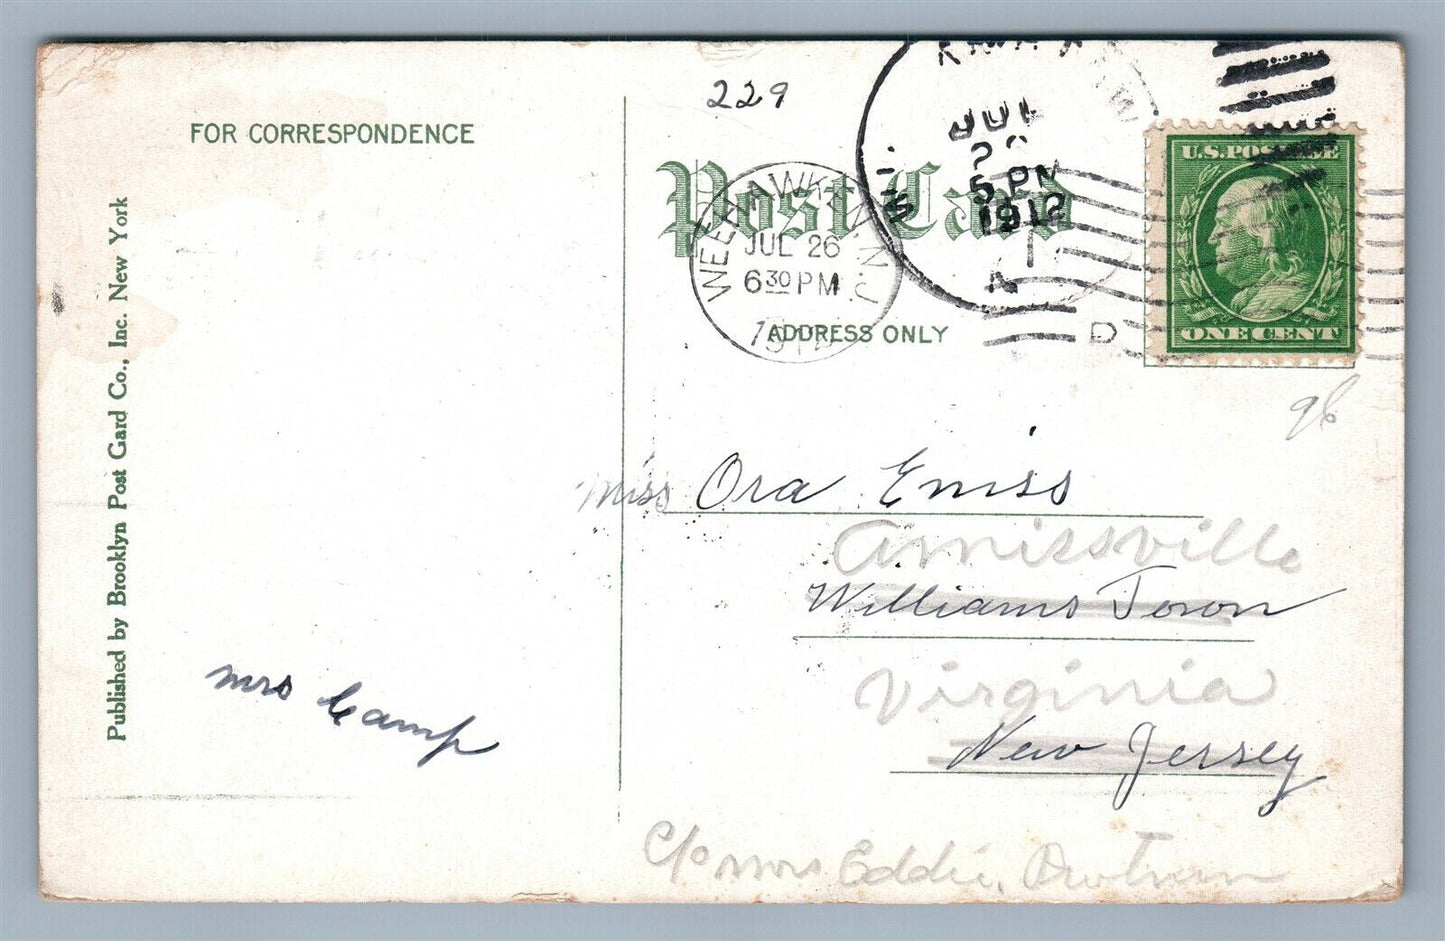 FOR CORRESPONDENCE
Published by Brooklyn Post Card Co., Inc. New York
mrs Camp
229
Post Card
ADDRESS ONLY
WEEHAWKEN, N.J.
JUL 26
6 30 PM
1912
JUL
5 PM
1912
N
D
U.S. POSTAGE
ONE CENT
96
Miss Ora Emiss
Amissville
Williams Town
Virginia
New Jersey
c/o mrs Eddie